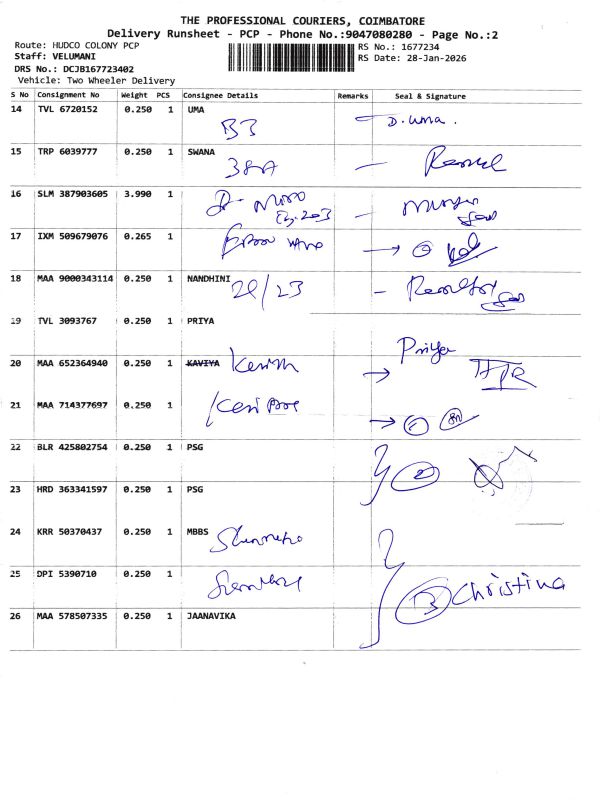 THE PROFESSIONAL COURIERS, COIMBATORE
Delivery Runsheet - PCP - Phone No.:9047080280 - Page No.:2
Route: HUDCO COLONY PCP
Staff: VELUMANI
DRS No.: DCJB167723402
Vehicle: Two Wheeler Delivery
RS No.: 1677234
RS Date: 28-Jan-2026
S No Consignment No Weight PCS Consignee Details Remarks Seal & Signature
14 TVL 6720152 0.250 1 UMA
B3 D. Uma.
15 TRP 6039777 0.250 1 SWANA
38A
16 SLM 387903605 3.990 1
17 IXM 509679076 0.265 1
18 MAA 9000343114 0.250 1 NANDHINI
20/23
19 TVL 3093767 0.250 1 PRIYA
Priya
20 MAA 652364940 0.250 1 KAVIYA
21 MAA 714377697 0.250 1
22 BLR 425802754 0.250 1 PSG
2
23 HRD 363341597 0.250 1 PSG
24 KRR 50370437 0.250 1 MBBS
25 DPI 5390710 0.250 1
3 Christina
26 MAA 578507335 0.250 1 JAANAVIKA